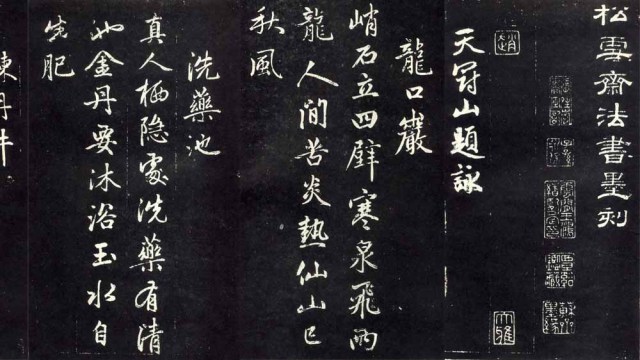 松雪齋法書墨刻
趙
大雅
天冠山題詠
龍口巖
峭石立四壁寒泉飛兩
龍人間苦炎熱仙山已
秋風
洗藥池
真人栖隱處洗藥有清
池金丹要沐浴玉水自
生肥
丹井